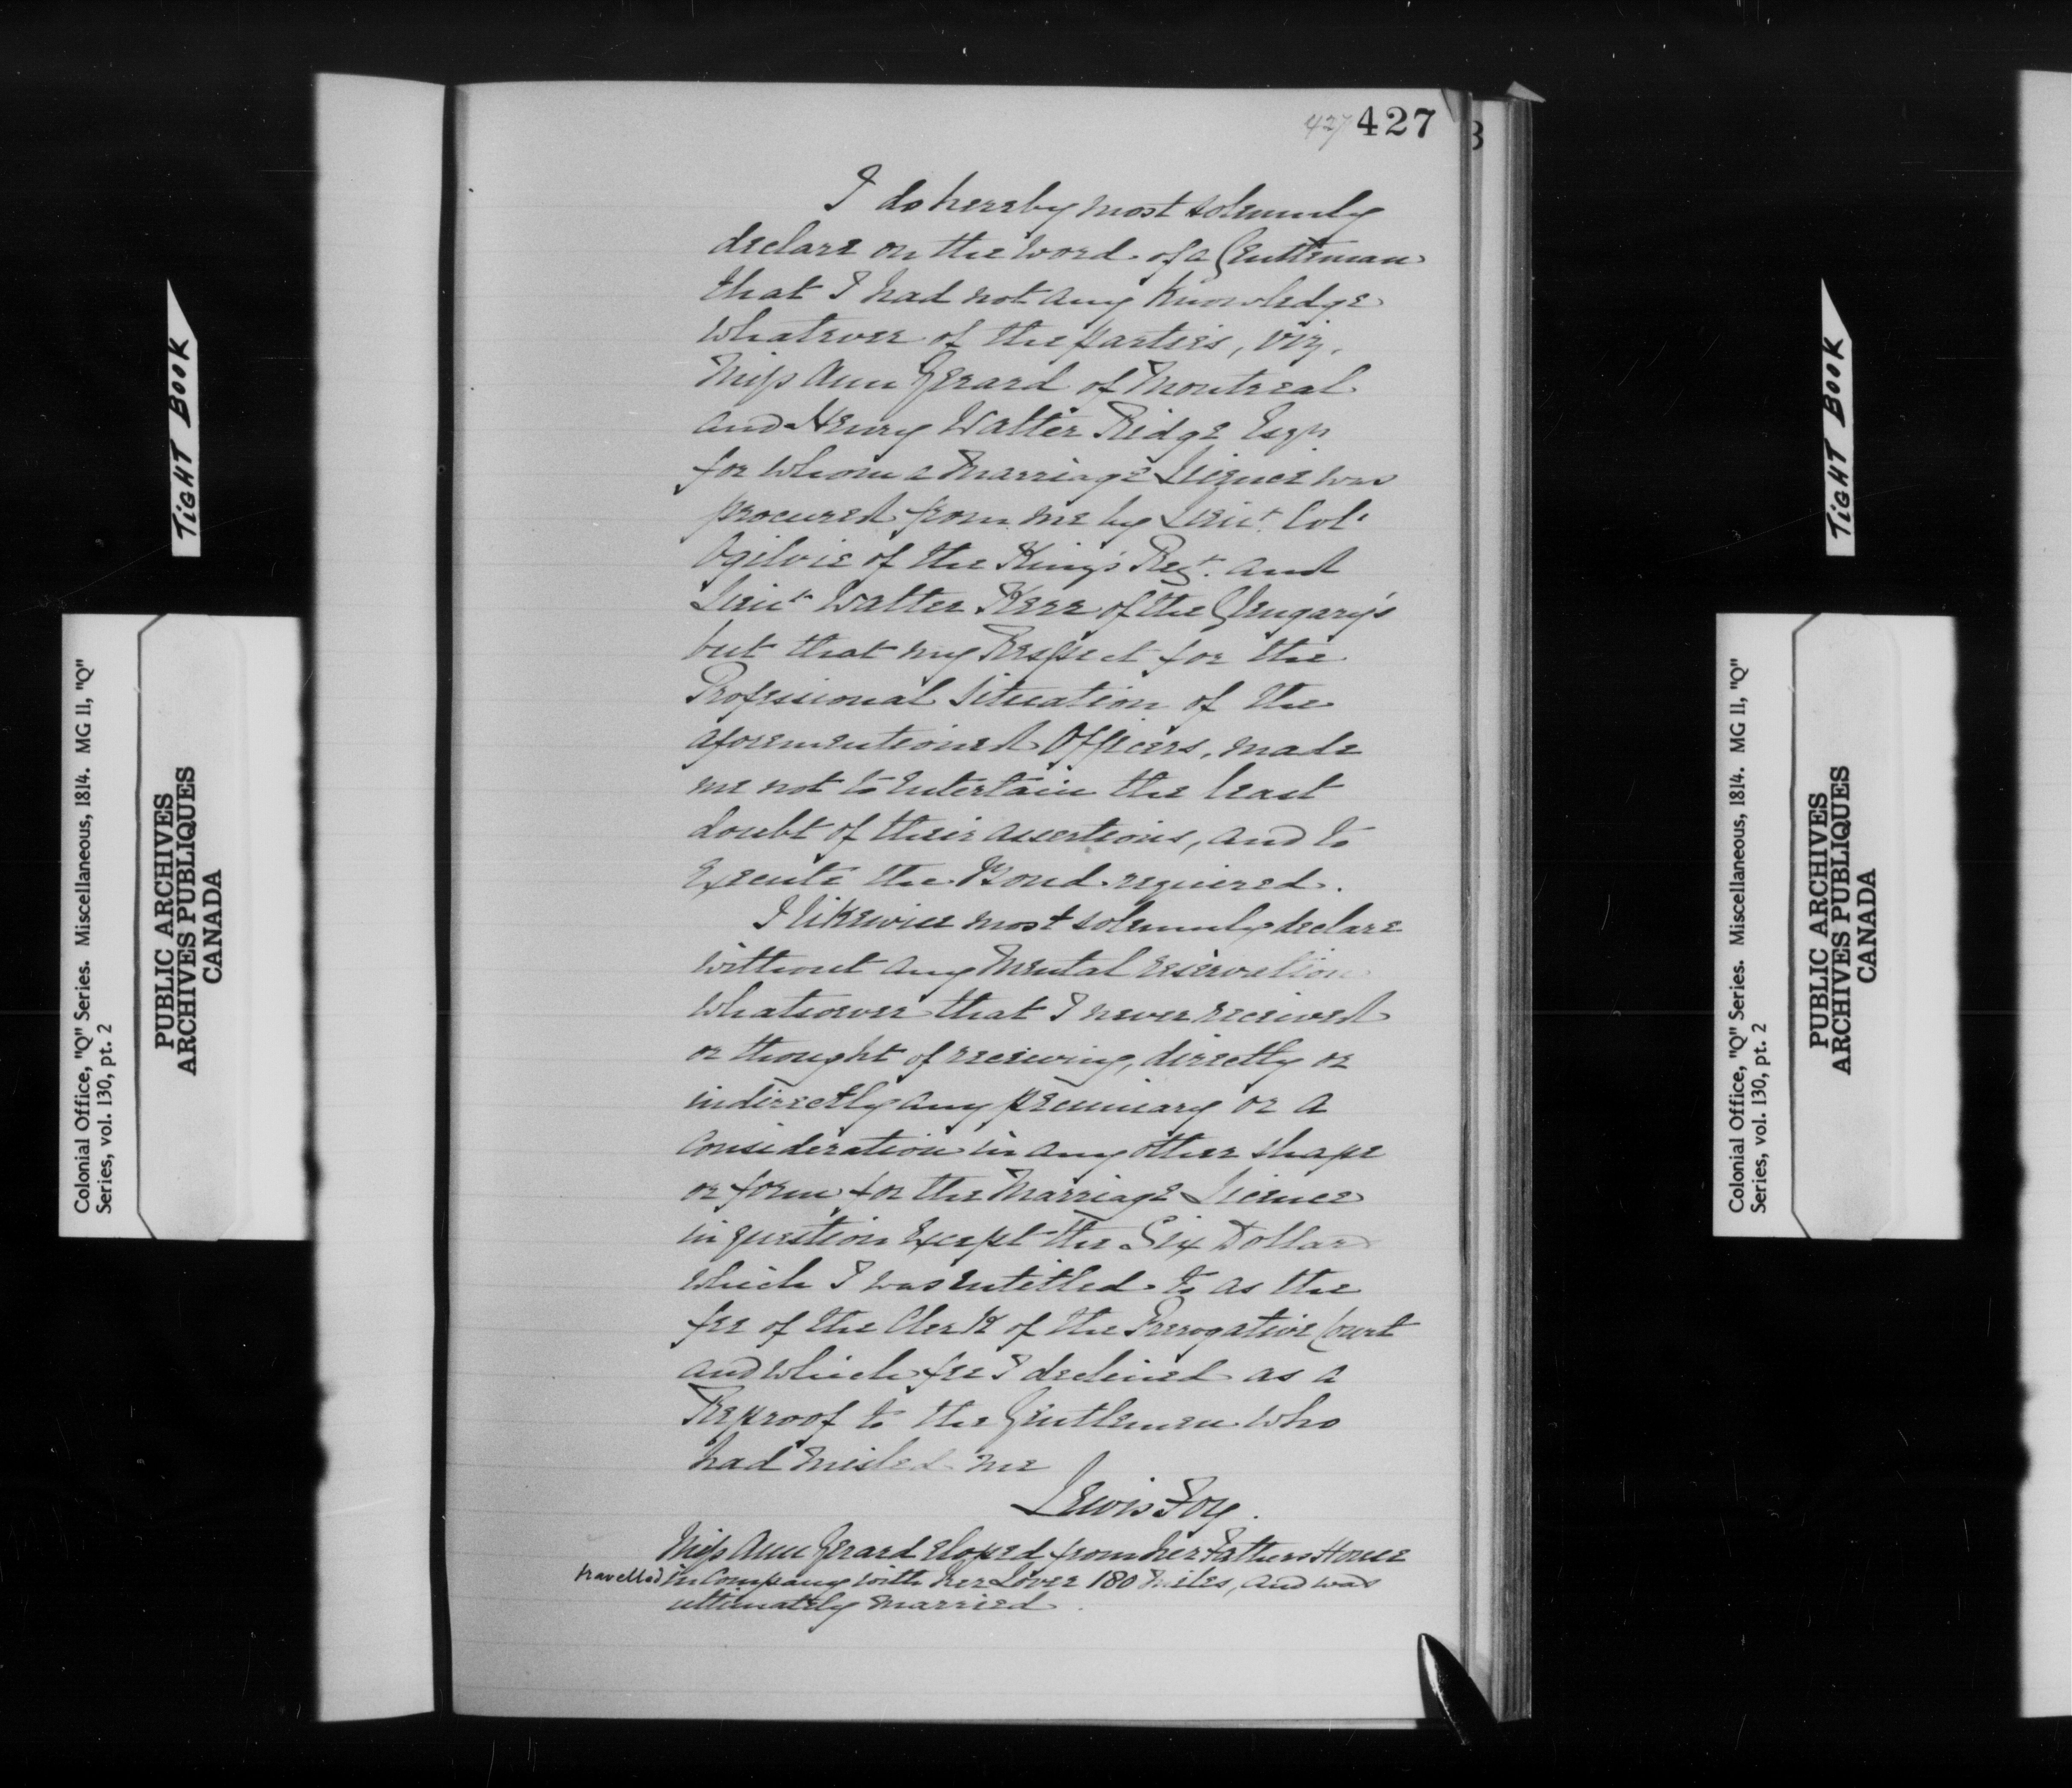 427 427
I do hereby most solemnly
declare on the word of a Gentleman
that I had not any Knowledge
whatever of the parties, viz.
Miss Ann Gerard of Montreal
and Henry Walter Ridge Esqr
for whom a Marriage Licence was
procured from me by Lieut. Col.
Ogilvie of the King's Regt. and
Lieut. Walter Kerr of the Glengary's
but that my Respect for the
Professional Situation of the
aforementioned Officers, made
me not to Entertain the least
doubt of their assertions, and to
Execute the Bond required.
I likewise most solemnly declare
without any Mental reservation
whatsoever that I never received
or thought of receiving, directly or
indirectly any pecuniary or a
Consideration in any other shape
or form for the Marriage Licence
in question Except the Six Dollars
which I was entitled to as the
fee of the Clerk of the Prerogative Court
and which fee I declined as a
Reproof to the Gentlemen who
had misled me
Lewis Foy.
Miss Ann Gerard eloped from her Fathers House
travelled in Company with her Lover 180 Miles, and was
ultimately married.
TIGHT BOOK
Colonial Office, "Q" Series. Miscellaneous, 1814. MG 11, "Q"
Series, vol. 130, pt. 2
PUBLIC ARCHIVES
ARCHIVES PUBLIQUES
CANADA
TIGHT BOOK
Colonial Office, "Q" Series. Miscellaneous, 1814. MG 11, "Q"
Series, vol. 130, pt. 2
PUBLIC ARCHIVES
ARCHIVES PUBLIQUES
CANADA